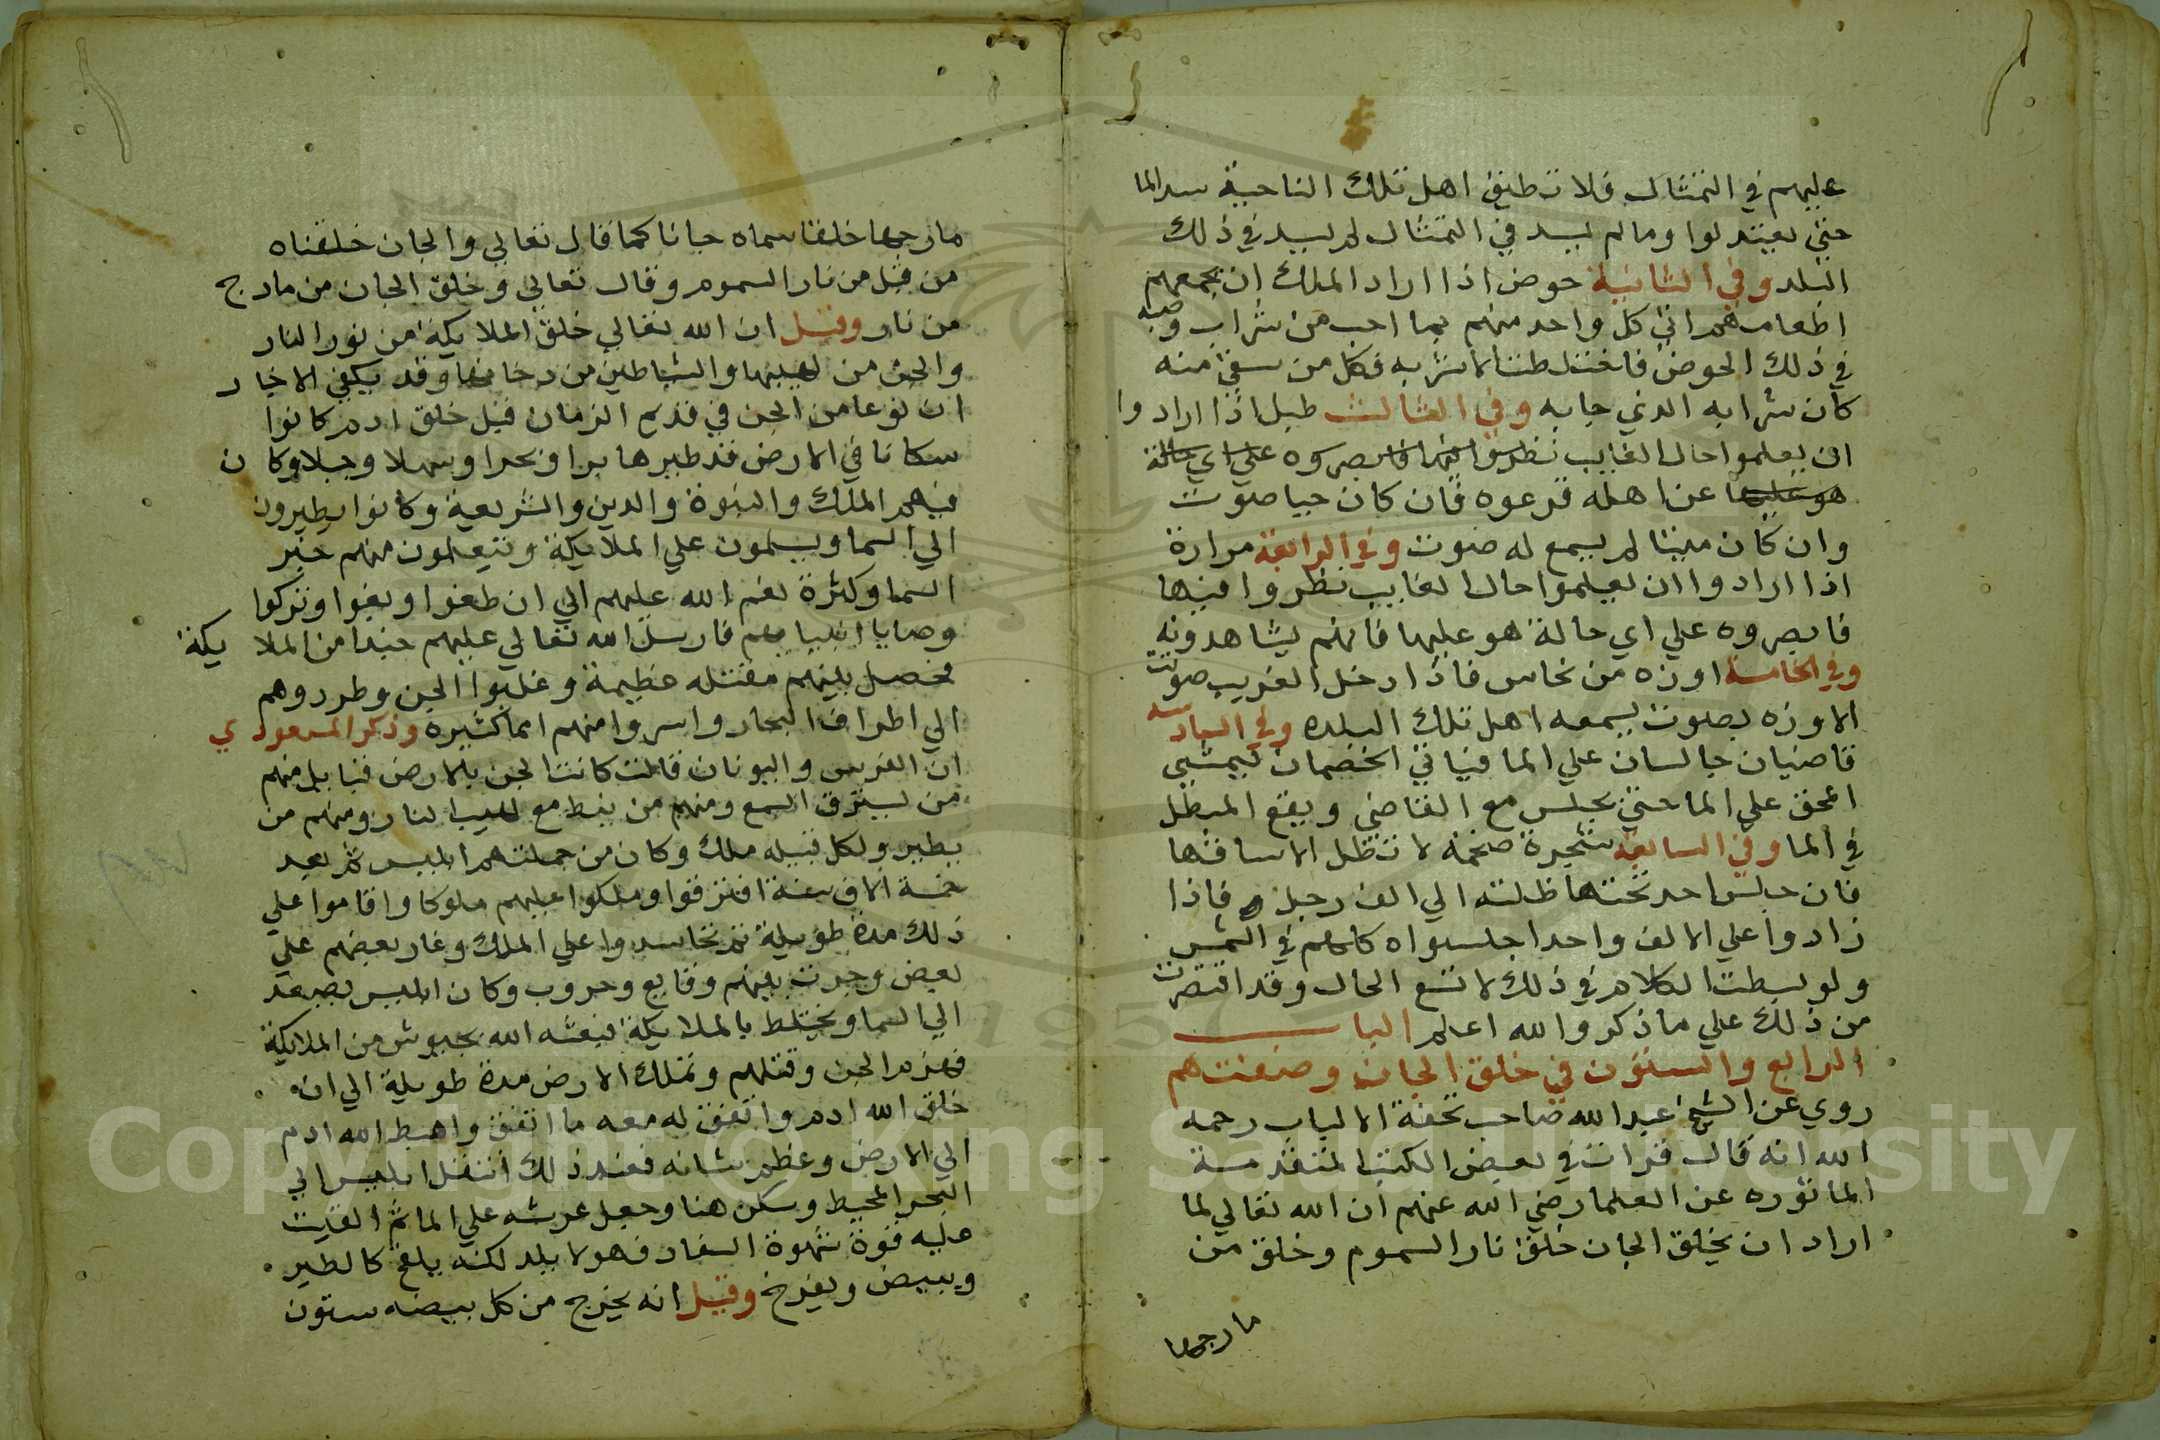 عليهم في التمثال فلا تطيق اهل تلك الناحية سد الما
حتي يعتدلوا وما لم يسد في التمثال لم يسد في ذلك
البلد وفي الثانية حوض اذا اراد الملك ان يجمعهم
اطعامهم اتي كل واحد منهم بما احب من شراب وصبه
في ذلك الحوض فاختلطت الاشربه فكل من سقي منه
كان شرابه الذي جا به وفي الثالث طبل اذا ارادوا
ان يعلموا حال الغايب نظروا فيها فابصروه علي اي حالة
هو عليها عن اهله قرعوه فان كان حيا صوت
وان كان ميتا لم يسمع له صوت وفي الرابعة مراة
اذا ارادوا ان يعلموا حال الغايب نظروا فيها
فابصروه علي اي حالة هو عليها فانهم يشاهدونه
وفي الخامسة اوزه من نحاس فاذا دخل الغريب صوتت
الاوزه بصوت يسمعه اهل تلك البلده وفي السادسه
قاضيان جالسان علي الما فياتي الخصمان فيمشي
المحق علي الما حتي يجلس مع القاضي ويقع المبطل
في الما وفي السابعة شجرة ضخمة لا تظل الا ساقها
فان جلس احد تحتها ظلته الي الف رجل فاذا
زادوا علي الالف واحدا جلسوا كلهم في الشمس
ولو بسطت الكلام في ذلك لا تسع الحال وقد اقتصرت
من ذلك علي ما ذكر والله اعلم الباب
الرابع والستون في خلق الجان وصفتهم
روي عن الشيخ عبد الله صاحب تحفة الالباب رحمه
الله انه قال قرات في بعض الكتب المتقدمة
الماثوره عن العلما رضي الله عنهم ان الله تعالي لما
اراد ان يخلق الجان خلق نار السموم وخلق من
مارجها
مارجها خلقا سماه جانا كما قال تعالي والجان خلقناه
من قبل من نار السموم وقال تعالي وخلق الجان من مارج
من نار وقيل ان الله تعالي خلق الملايكة من نور النار
والجن من لهبها والشياطين من دخانها وقد يكفي الاخبار
ان نوعا من الجن في قديم الزمان قبل خلق ادم كانوا
سكانا في الارض قد طبروها برا وبحرا وسهلا وجبلا وكان
فيهم الملك والنبوة والدين والشريعة وكانوا يطيرون
الي السما ويسلمون علي الملايكة ويتعلمون منهم خبر
السما وكثرة نعم الله عليهم الي ان طغوا وبغوا وتركوا
وصايا انبيايهم فارسل الله تعالي عليهم جندا من الملايكة
فحصل بينهم مقتله عظيمة وغلبوا الجن وطردوهم
الي اطراف البحار واسروا منهم امما كثيره وذكر المسعودي
ان الفرس واليونان قالت كانت الجن بالارض قبايل منهم
من يسترق السمع ومنهم من ينط مع لهيب النار ومنهم من
يطير ولكل قبيله ملك وكان من جملتهم ابليس ثم بعد
خمسة الاف سنة افترقوا وملكوا عليهم ملوكا واقاموا علي
ذلك مدة طويلة ثم تحاسدوا علي الملك وغار بعضهم علي
بعض وجرت بينهم وقايع وحروب وكان ابليس يصعد
الي السما ويختلط بالملايكة فبعثه الله بجيوش من الملايكة
فهزم الجن وقتلهم وتملك الارض مدة طويلة الي ان
خلق الله ادم واتفق له معه ما اتفق واهبط الله ادم
الي الارض وعظم شانه فعند ذلك انتقل ابليس الي
البحر المحيط وسكن هنا وجعل عرشه علي الما ثم القيت
عليه قوة شهوة السفاد فهو لا يلد لكنه يلقح كالطير
ويبيض ويفرخ وقيل انه يخرج من كل بيضه ستون